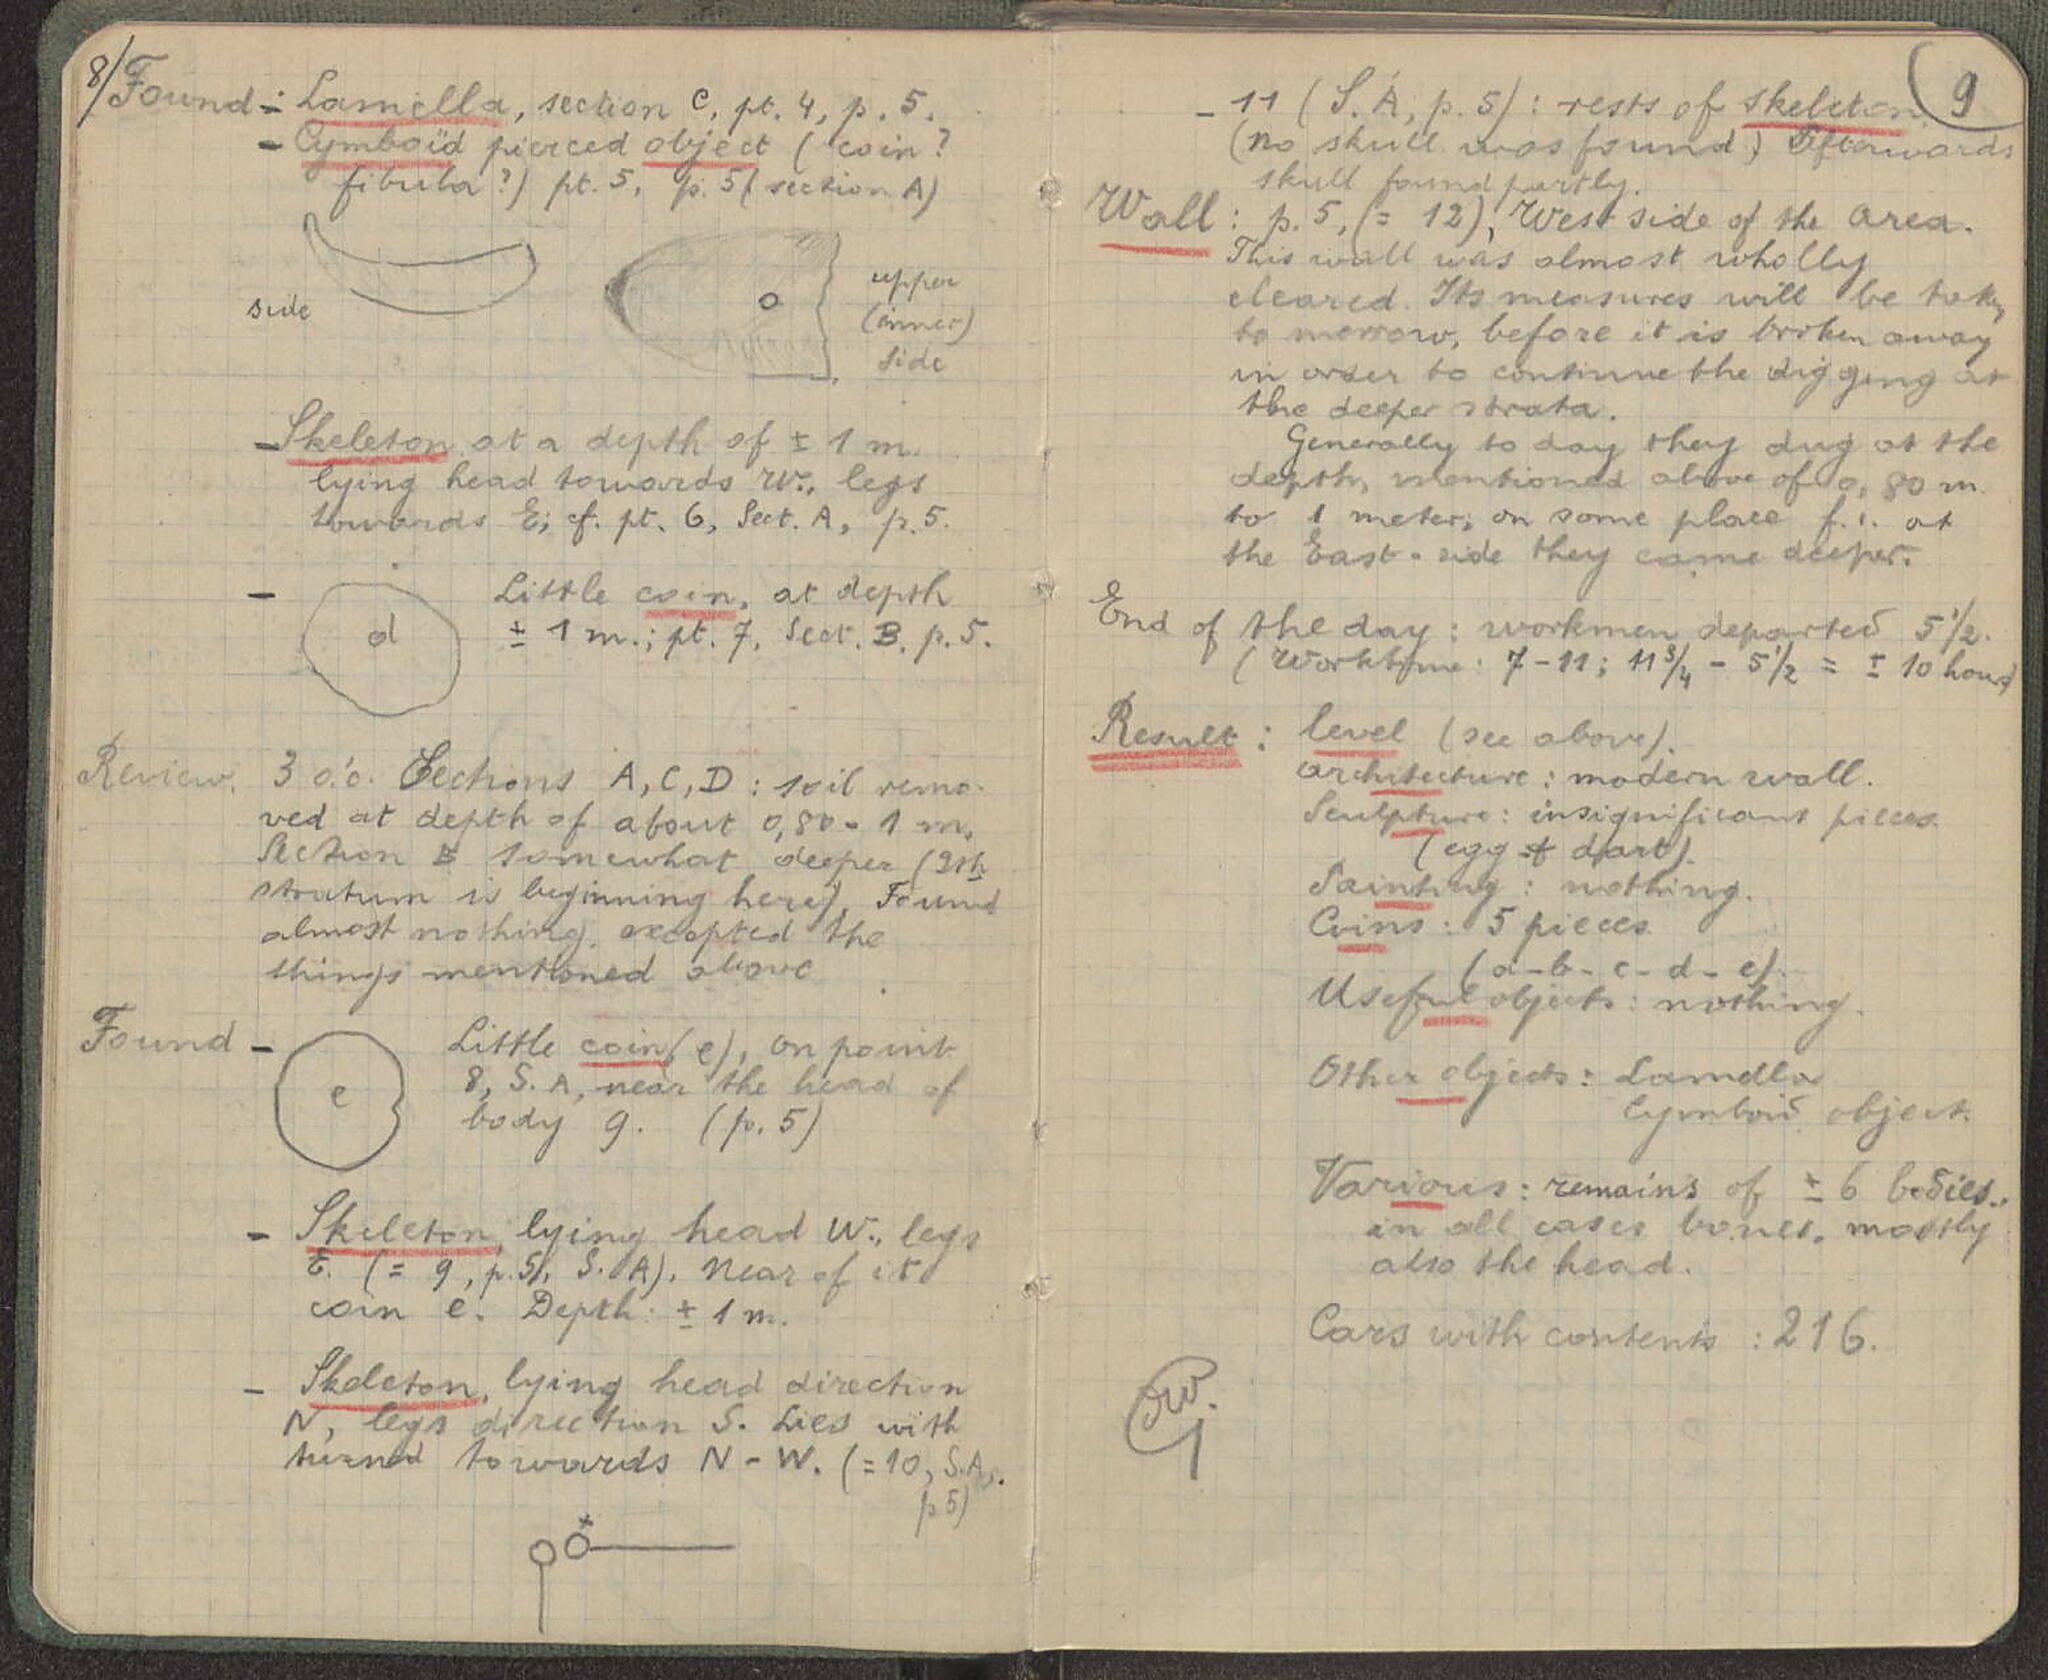 8/
Found - : Lamella, section C, pt. 4, p. 5.
- Cymboïd pierced object (coin?
fibula?) pt. 5, p. 5 (section A)
side
upper
(inner)
side
- Skeleton at a depth of ± 1 m.
lying head towards W., legs
towards E; cf. pt. 6, Sect. A, p. 5.
- d Little coin, at depth
± 1 m.; pt. 7, Sect. B, p. 5.
Review. 3 o.'c. Sections A, C, D : soil remo-
ved at depth of about 0,80 - 1 m.
Section B somewhat deeper (2th
stratum is beginning here). Found
almost nothing, excepted the
things mentioned above
Found - e Little coin (e), on point
8, S. A, near the head of
body 9. (p. 5)
- Skeleton, lying head W., legs
E. (= 9, p. 5, S. A). Near of it
coin e. Depth: ± 1 m.
- Skeleton, lying head direction
N, legs direction S. Lies with
turned towards N - W. (= 10, S.A.,
p 5)
9
- 11 (S. A, p. 5) : rests of skeleton
(no skull was found) Afterwards
skull found partly.
Wall : p. 5, (= 12), West side of the area.
This wall was almost wholly
cleared. Its measures will be taken
to morrow, before it is broken away
in order to continue the digging at
the deeper strata.
Generally to day they dug at the
depth, mentioned above of 0,80 m.
to 1 meter; on some place f. i. at
the East-side they came deeper.
End of the day : workmen departed 5 1/2.
(Worktime : 7 - 11 ; 11 3/4 - 5 1/2 = ± 10 hours)
Result : level (see above).
architecture : modern wall.
Sculpture : insignificant pieces
(egg + dart).
Painting : nothing.
Coins : 5 pieces
(a - b - c - d - e).
Useful objects : nothing.
Other objects : Lamella
Cymboid object.
Various : remains of ± 6 bodies.,
in all cases bones, mostly
also the head.
Cars with contents : 216.